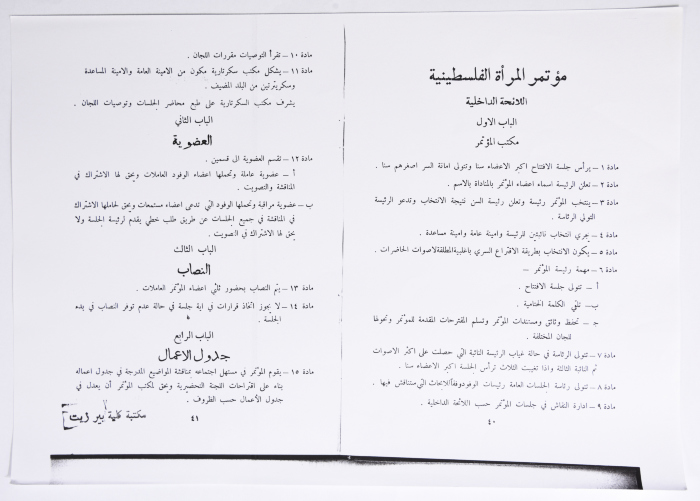 مؤتمر المرأة الفلسطينية
اللائحة الداخلية
الباب الاول
مكتب المؤتمر
مادة ١ – يرأس جلسة الافتتاح اكبر الاعضاء سنا وتتولى امانة السر اصغرهم سنا .
مادة ٢ – تعلن الرئيسة اسماء اعضاء المؤتمر بالمناداة بالاسم .
مادة ٣ – ينتخب المؤتمر رئيسة وتعلن رئيسة السن نتيجة الانتخاب وتدعو الرئيسة
التولى الرئاسة .
مادة ٤ – يجري انتخاب نائبتين للرئيسة وامينة عامة وامينة مساعدة .
مادة ٥ – يكون الانتخاب بطريقة الاقتراع السري باغلبية المطلقة لاصوات الحاضرات .
مادة ٦ – مهمة رئيسة المؤتمر –
أ – تتولى جلسة الافتتاح .
ب – تلقي الكلمة الختامية .
ج – تحفظ وثائق ومستندات المؤتمر وتسلم المقترحات المقدمة للمؤتمر وتحولها
للجان المختلفة .
مادة ٧ – تتولى الرئاسة في حالة غياب الرئيسة النائبة التي حصلت على اكثر الاصوات
ثم النائبة الثالثة واذا تغيبت الثلاث ترأس الجلسة اكبر الاعضاء سنا .
مادة ٨ – تتولى رئاسة الجلسات العامة رئيسات الوفود وفقا للابحاث التي ستناقش فيها .
مادة ٩ – ادارة النقاش في جلسات المؤتمر حسب اللائحة الداخلية .
٤٠
مادة ١٠ – تقرأ التوصيات مقررات اللجان .
مادة ١١ – يشكل مكتب سكرتارية مكون من الامينة العامة والامينة المساعدة
وسكريتريتين من البلد المضيف .
يشرف مكتب السكرتارية على طبع محاضر الجلسات وتوصيات اللجان .
الباب الثاني
العضوية
مادة ١٢ – تقسم العضوية الى قسمين .
أ – عضوية عاملة وتحملها اعضاء الوفود العاملات ويحق لها الاشتراك في
المناقشة والتصويت .
ب – عضوية مراقبة وتحملها الوفود التي تدعى اعضاء مستمعات ويحق لحاملها الاشتراك
في المناقشة في جميع الجلسات عن طريق طلب خطي يقدم لرئيسة الجلسة ولا
يحق لها الاشتراك في التصويت .
الباب الثالث
النصاب
مادة ١٣ – يتم النصاب بحضور ثلثي اعضاء المؤتمر العاملات .
مادة ١٤ – لا يجوز اتخاذ قرارات في اية جلسة في حالة عدم توفر النصاب في بدء
الجلسة .
الباب الرابع
جدول الاعمال
مادة ١٥ – يقوم المؤتمر في مستهل اجتماعه بمناقشة المواضيع المدرجة في جدول اعماله
بناء على اقتراحات اللجنة التحضيرية ويحق لمكتب المؤتمر أن يعدل في
جدول الأعمال حسب الظروف .
٤١
مكتبة كلية بير زيت